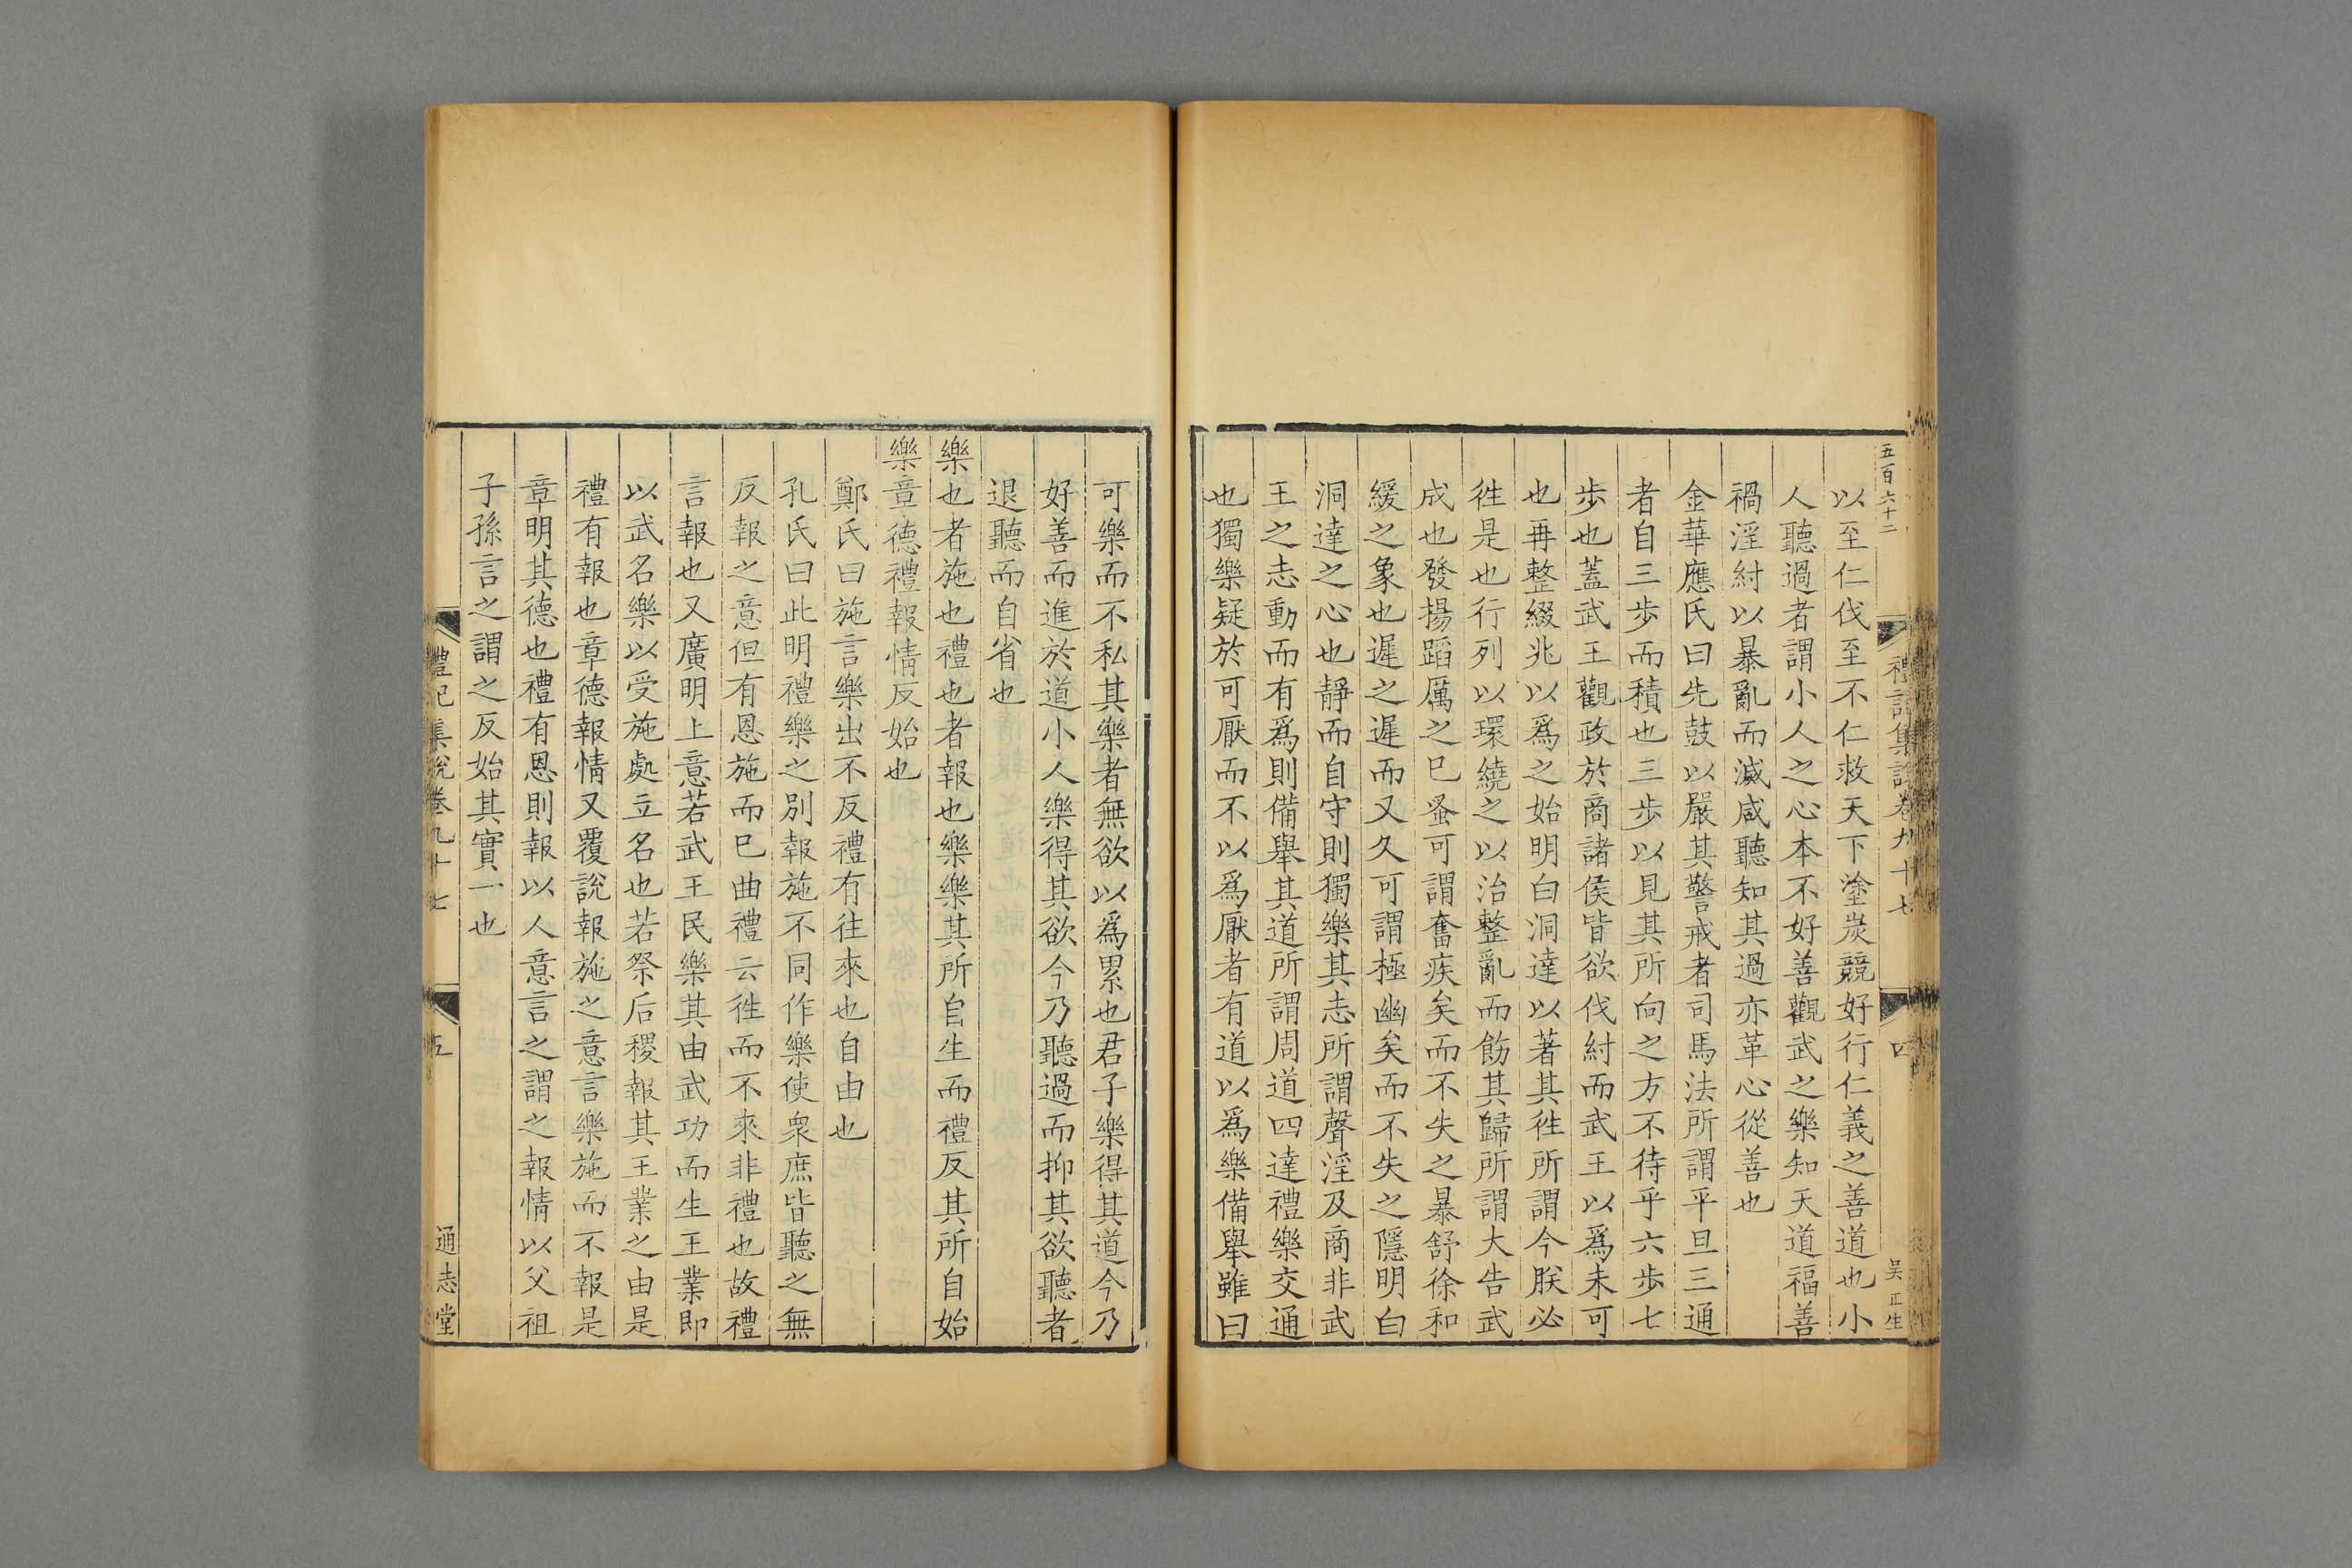 五百六十二
禮記集說卷九十七
四
吴正生
以至仁伐至不仁救天下塗炭競好行仁義之善道也小
人聽過者謂小人之心本不好善觀武之樂知天道福善
禍淫紂以暴亂而滅咸聽知其過亦革心從善也
金華應氏曰先鼓以嚴其警戒者司馬法所謂平旦三通
者自三步而積也三步以見其所向之方不待乎六步七
步也蓋武王觀政於商諸侯皆欲伐紂而武王以爲未可
也再整綴兆以爲之始明白洞達以著其徃所謂今朕必
徃是也行列以環繞之以治整亂而飭其歸所謂大告武
成也發揚蹈厲之已蚤可謂奮疾矣而不失之暴舒徐和
緩之象也遲之遲而又久可謂極幽矣而不失之隱明白
洞達之心也靜而自守則獨樂其志所謂聲淫及商非武
王之志動而有爲則備舉其道所謂周道四達禮樂交通
也獨樂疑於可厭而不以爲厭者有道以爲樂備舉雖曰
可樂而不私其樂者無欲以爲累也君子樂得其道今乃
好善而進於道小人樂得其欲今乃聽過而抑其欲聽者
退聽而自省也
樂也者施也禮也者報也樂樂其所自生而禮反其所自始
樂章德禮報情反始也
鄭氏曰施言樂出不反禮有往來也自由也
孔氏曰此明禮樂之別報施不同作樂使衆庶皆聽之無
反報之意但有恩施而已曲禮云徃而不來非禮也故禮
言報也又廣明上意若武王民樂其由武功而生王業即
以武名樂以受施處立名也若祭后稷報其王業之由是
禮有報也章德報情又覆說報施之意言樂施而不報是
章明其德也禮有恩則報以人意言之謂之報情以父祖
子孫言之謂之反始其實一也
禮記集說卷九十七
五
通志堂